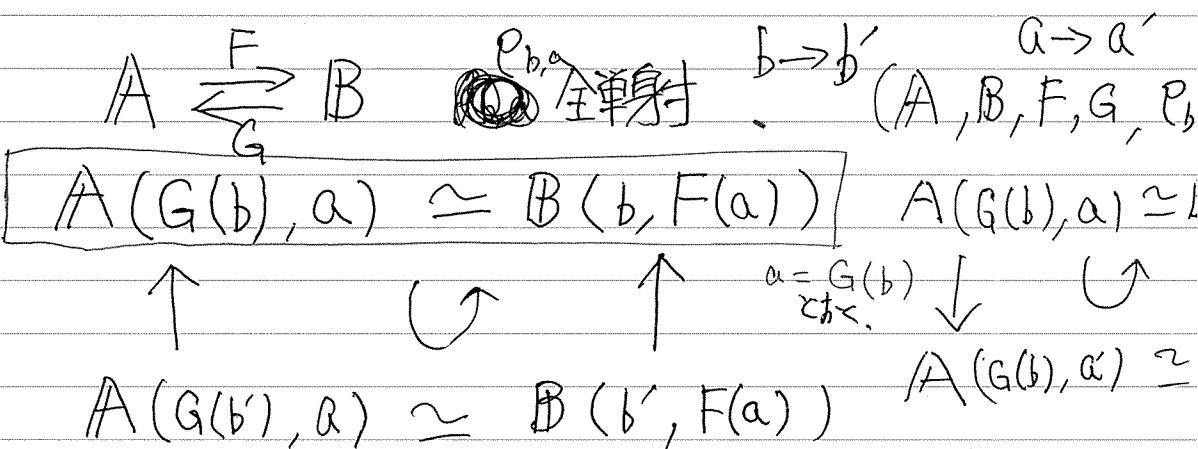 𝔸 ⇄ 𝔹 F G ρ_{b,a} 全単射. b→b′ a→a′
(𝔸, 𝔹, F, G, ρ_b
𝔸(G(b), a) ≃ 𝔹(b, F(a)) 𝔸(G(b), a) ≃
↑ ↑ a = G(b) ↓
とおく.
𝔸(G(b′), a) ≃ 𝔹(b′, F(a)) 𝔸(G(b), a′) ≃